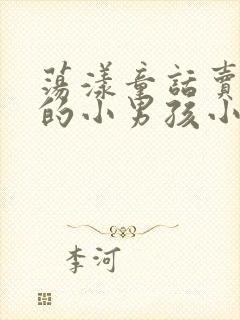 蕩漾童話賣
的小男孩小
李河